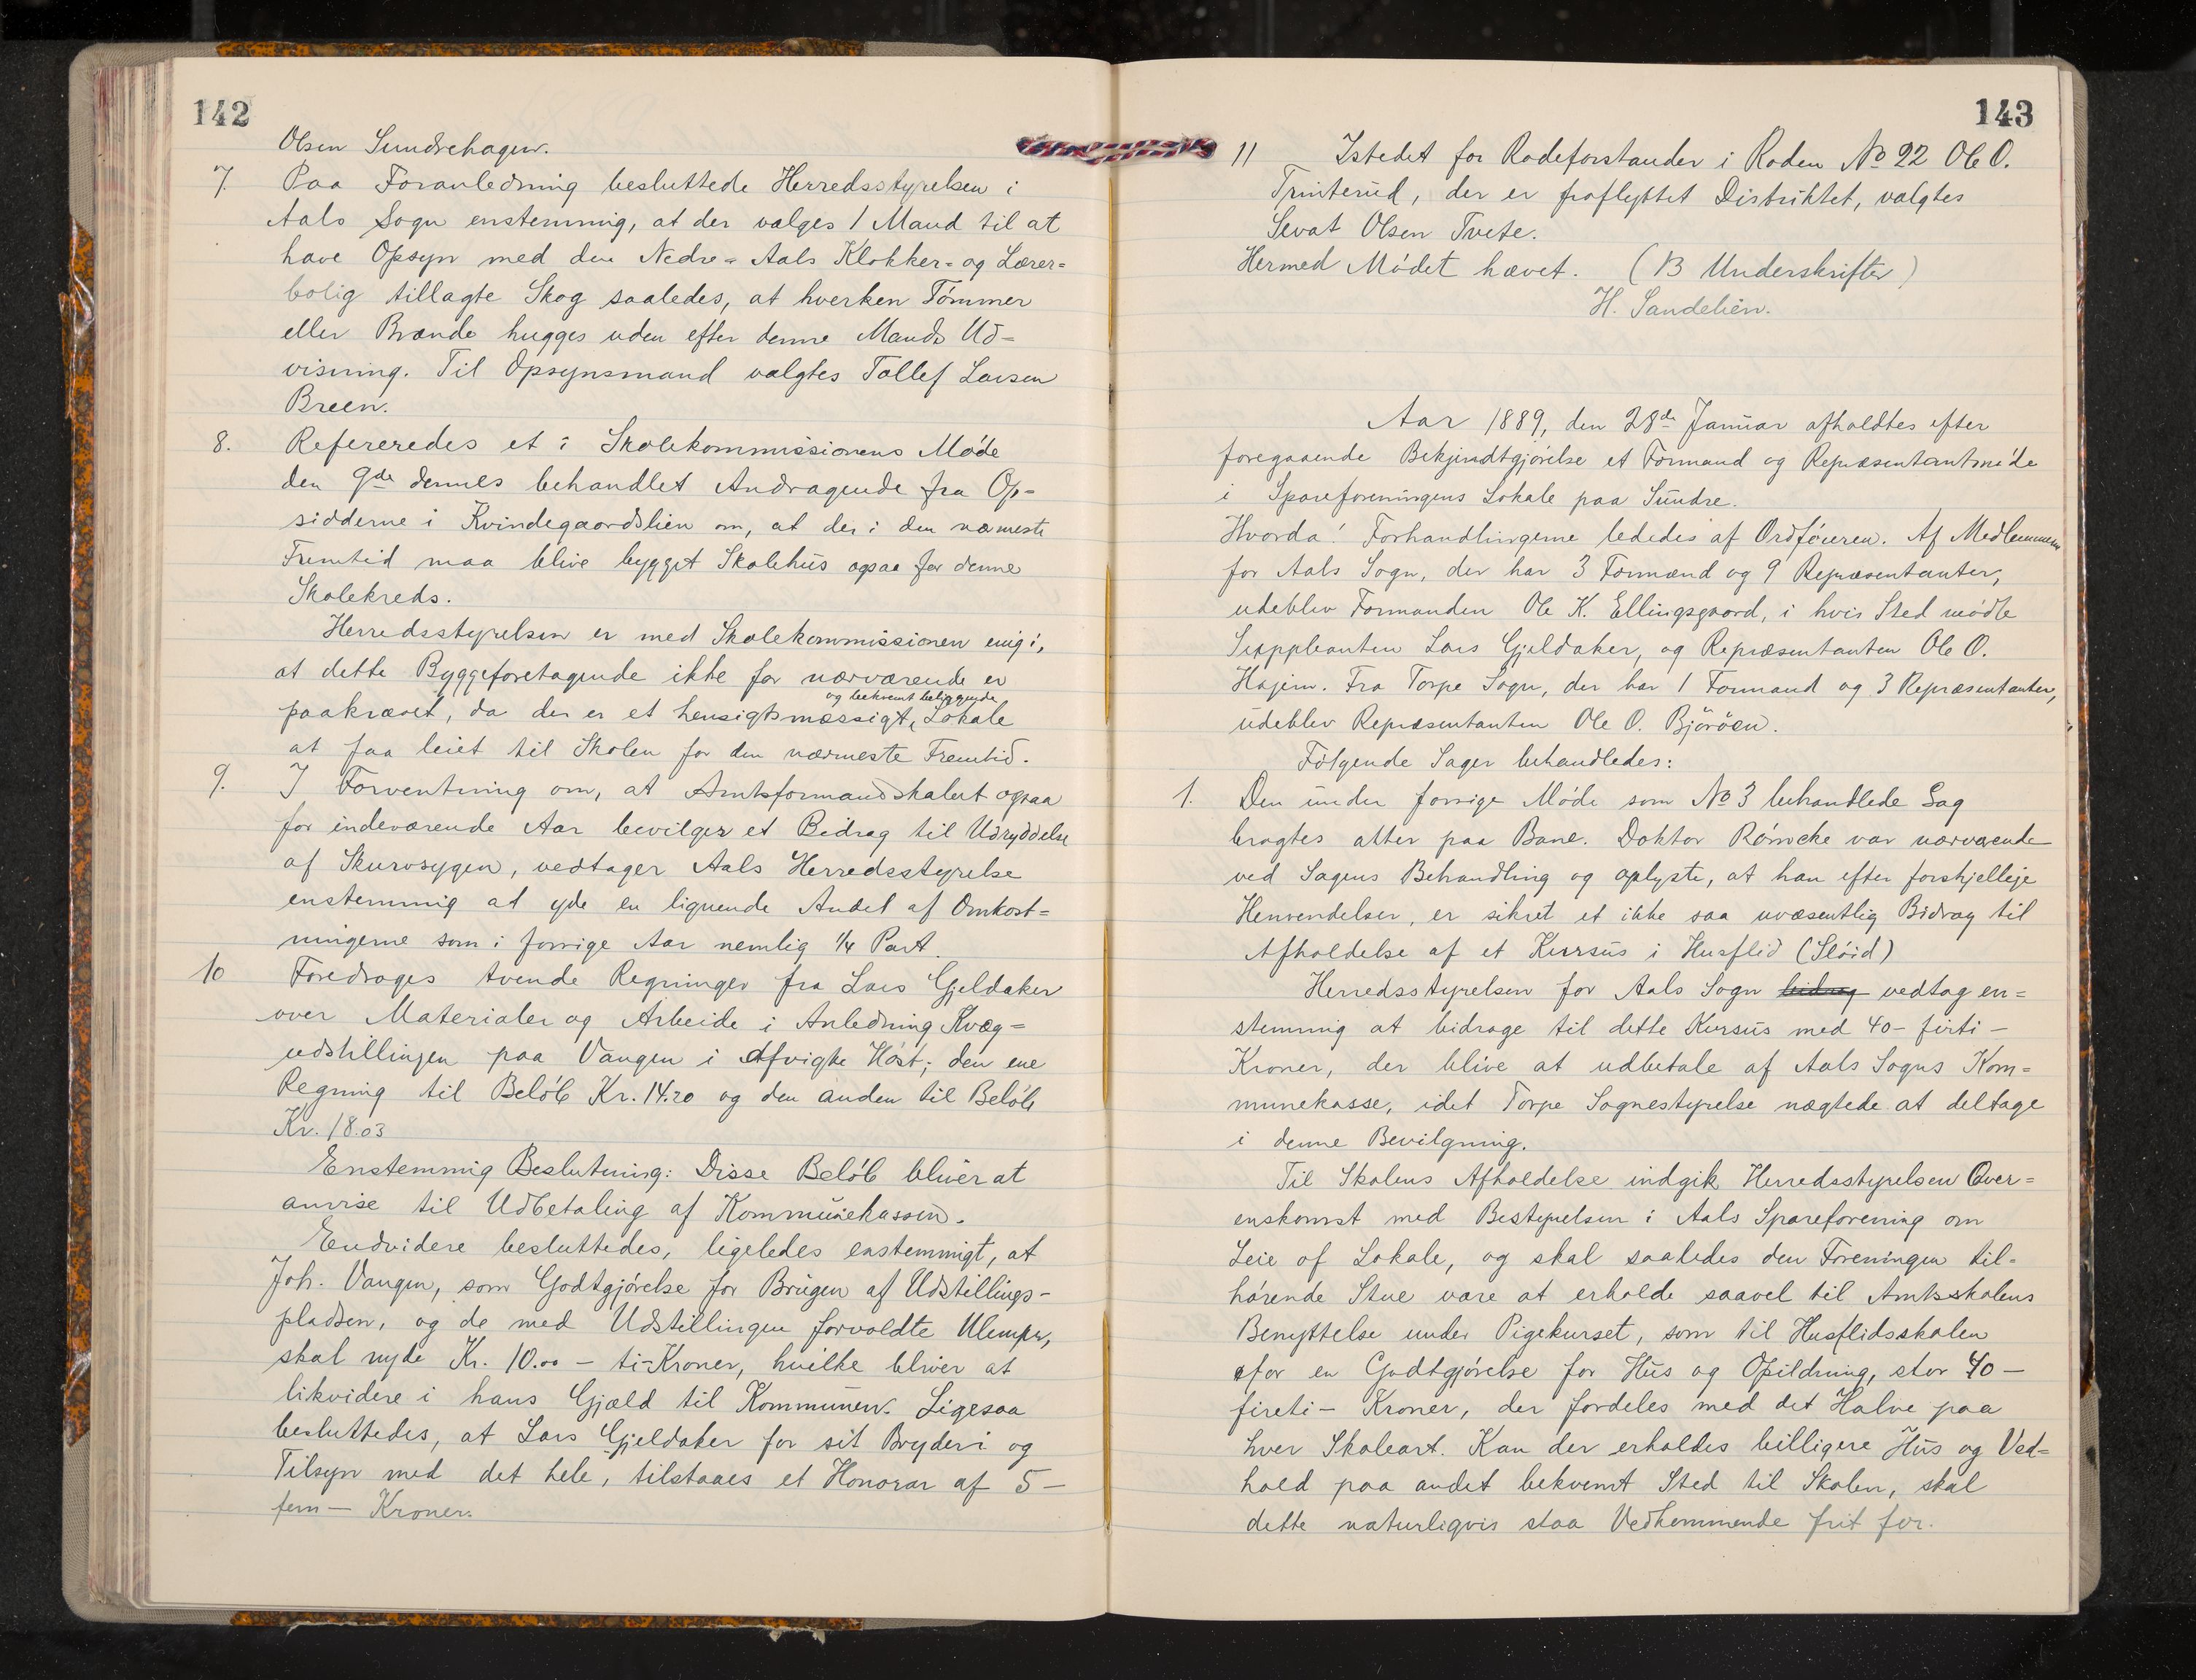 142
Olsen Sundrehagen.
7. Paa Foranledning besluttede Herredsstyrelsen i
Aals Sogn enstemmig, at der vælges 1 Mand til at
have Opsyn med den Nedre= Aals Klokker= og Lærer=
bolig tillagte Skog saaledes, at hverken Tømmer
eller Brænde hugges uden efter denne Mands Ud=
visning. Til Opsynsmand valgtes Tollef Larsen
Breen.
8. Refereredes et i Skolekommissionens Møde
den 9de dennes behandlet Andragende fra Op=
sidderne i Kvindegaardslien om, at der i den nærmeste
Fremtid maa blive bygget Skolehus ogsaa for denne
Skolekreds.
Herredsstyrelsen er med Skolekommissionen enig i,
at dette Byggeforetagende ikke for nærværende er
og bekvemt beliggende
paakrævet, da der er et hensigtsmæssigt, Lokale
at faa leiet til Skolen for den nærmeste Fremtid.
9. I Forventning om, at Amtsformandskabet ogsaa
for indeværende Aar bevilger et Bidrag til Udryddelse
af Skurvsygen, vedtager Aals Herredsstyrelse
enstemmig at yde en lignende Andel af Omkost=
ningerne som i forrige Aar nemlig 1/4 Part.
10 Foredroges tvende Regninger fra Lars Gjeldaker
over Materialer og Arbeide i Anledning Kvæg=
udstillingen paa Vangen i Afvigte Høst; den ene
Regning til Beløb Kr. 14.20 og den anden til Beløb
Kr. 18.03
Enstemmig Beslutning: Disse Beløb bliver at
anvise til Udbetaling af Kommunekassen.
Endvidere besluttedes, ligeledes enstemmigt, at
Joh. Vangen, som Godtgjørelse for Brugen af Udstillings-
pladsen, og de med Udstillingen forvoldte Ulemper,
skal nyde Kr. 10.00 – ti-Kroner, hvilke bliver at
likvidere i hans Gjæld til Kommunen. Ligesaa
besluttedes, at Lars Gjeldaker for sit Bryderi og
Tilsyn med det hele, tilstaaes et Honorar af 5 –
fem – Kroner.
143
11 Istedet for Rodeforstander i Roden No 22 Ole O.
Trinterud, der er fraflyttet Distriktet, valgtes
Sevat Olsen Tveto.
Hermed Mødet hævet. (13 Underskrifter)
H. Sandelien.
Aar 1889, den 28de Januar afholdtes efter
foregaaende Bekjendtgjørelse et Formand og Repræsentantmøde
i Spareforeningens Lokale paa Sundre.
Hvorda! Forhandlingerne lededes af Ordføreren. Af Medlemmerne
for Aals Sogn, der har 3 Formænd og 9 Repræsentanter,
udeblev Formanden Ole K. Ellingsgaard, i hvis Sted mødte
Suppleanten Lars Gjeldaker, og Repræsentanten Ole O.
Hajem. Fra Torpe Sogn, der har 1 Formand og 3 Repræsentanter,
udeblev Repræsentanten Ole O. Bjøröen.
Følgende Sager behandledes:
1. Den under forrige Møde som No 3 behandlede Sag
bragtes atter paa Bane. Doktor Römcke var nærværende
ved Sagens Behandling og oplyste, at han efter forskjellige
Henvendelser, er sikret et ikke saa uvæsentlig Bidrag til
Afholdelse af et Kursus i Husflid (Sløid)
Herredsstyrelsen for Aals Sogn bidrag vedtog en=
stemmig at bidrage til dette Kursus med 40 – firti –
Kroner, der blive at udbetale af Aals Sogns Kom=
munekasse, idet Torpe Sognestyrelse nægtede at deltage
i denne Bevilgning.
Til Skolens Afholdelse indgik Herredsstyrelsen Over=
enskomst med Bestyrelsen i Aals Spareforening om
Leie af Lokale, og skal saaledes den Foreningen til=
hørende Stue være at erholde saavel til Amtsskolens
Benyttelse under Pigekurset, som til Husflidsskolen
for en Godtgjørelse for Hus og Opildning, stor 40 –
fireti – Kroner, der fordeles med det Halve paa
hver Skoleart. Kan der erholdes billigere Hus og Ved=
hold paa andet bekvemt Sted til Skolen, skal
dette naturligvis staa Vedkommende frit for.